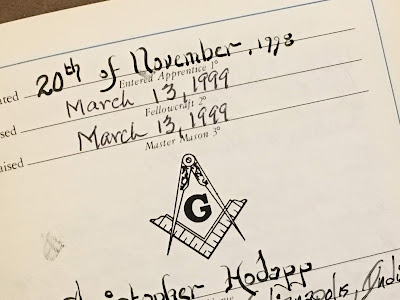 ated 20th of November, 1998
Entered Apprentice 1°
sed March 13, 1999
Fellowcraft 2°
aised March 13, 1999
Master Mason 3°
G
Christopher Hodapp